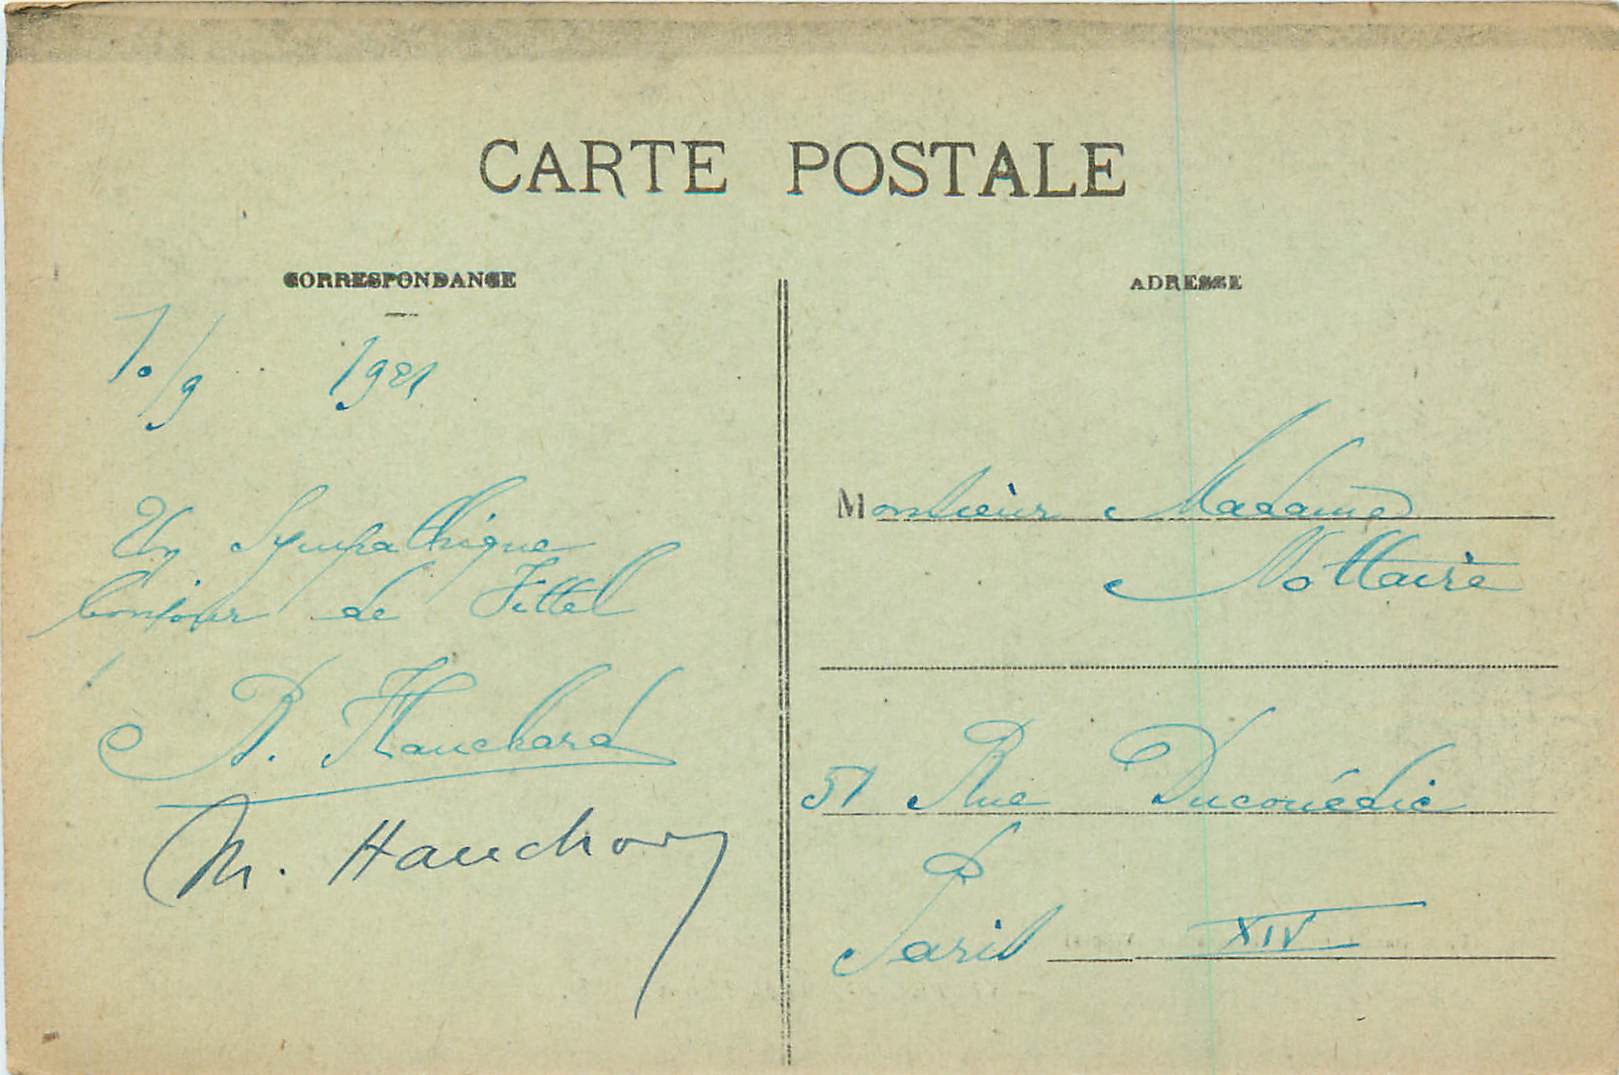 CARTE POSTALE
CORRESPONDANCE
10/9 1921
Un sympathique
bonjour de Vittel
M.
ADRESSE
Monsieur Madame
Nottaire
51 Rue Ducouédic
Paris XIV